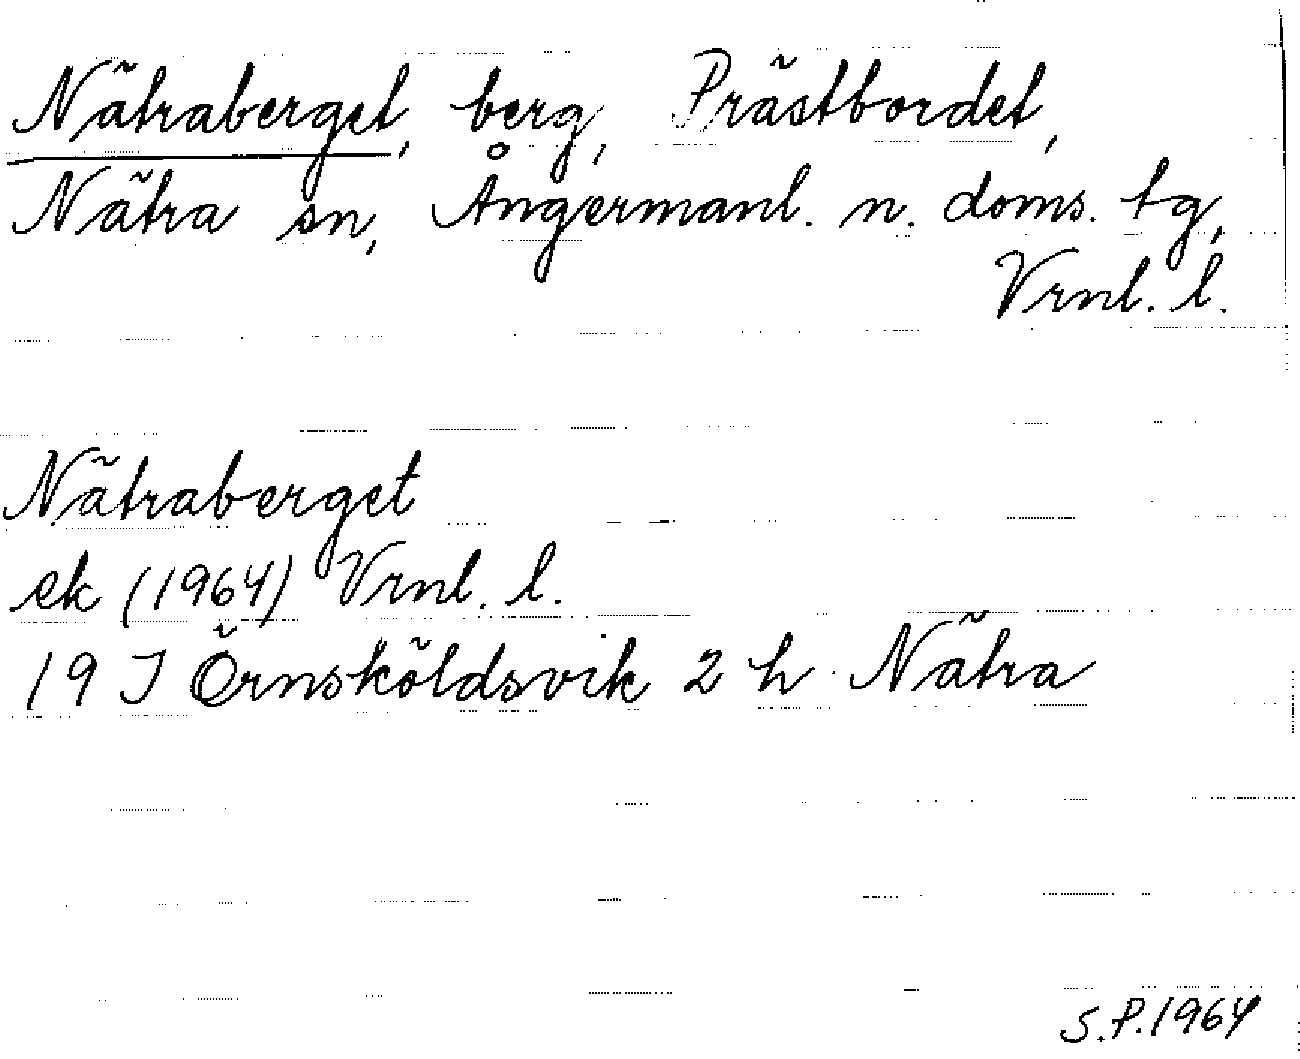 Nätraberget, berg, Prästbordet,
Nätra sn, Ångermanl. n. doms. tg,
Vrnl. l.
Nätraberget
ek (1964) Vrnl. l.
19 J Örnsköldsvik 2 h Nätra
S.P. 1964